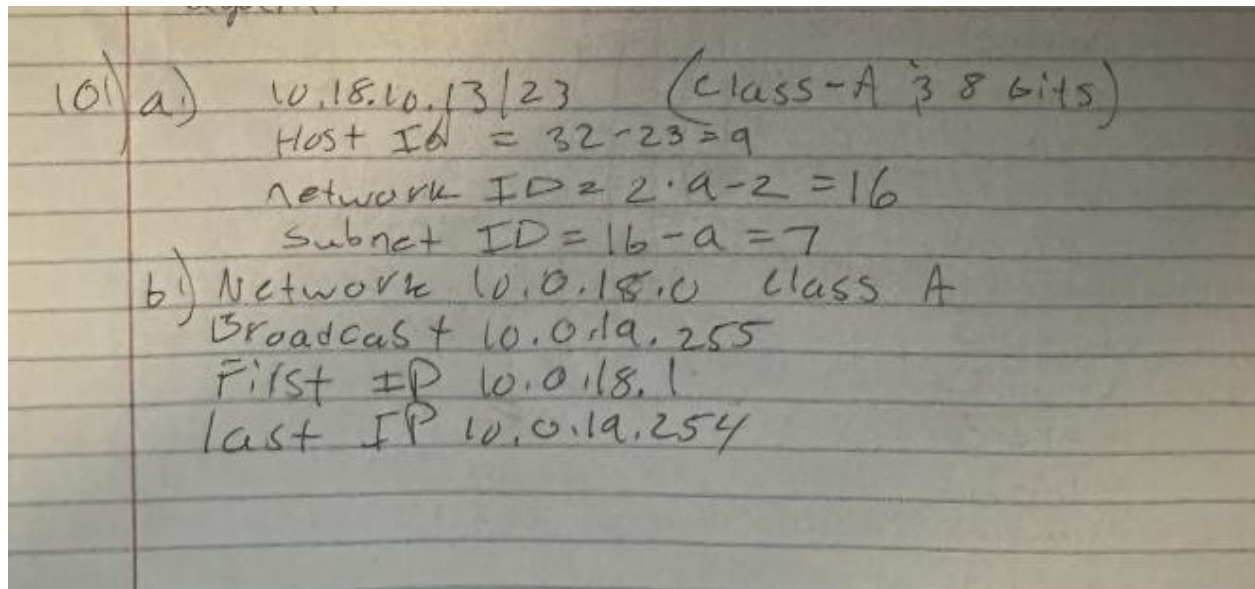 10) a.) 10.18.10.13/23 (Class-A → 8 bits)
Host ID = 32-23=9
Network ID = 2·9-2=16
Subnet ID=16-9=7
b.) Network 10.0.18.0 Class A
Broadcast 10.0.19.255
First IP 10.0.18.1
last IP 10.0.19.254